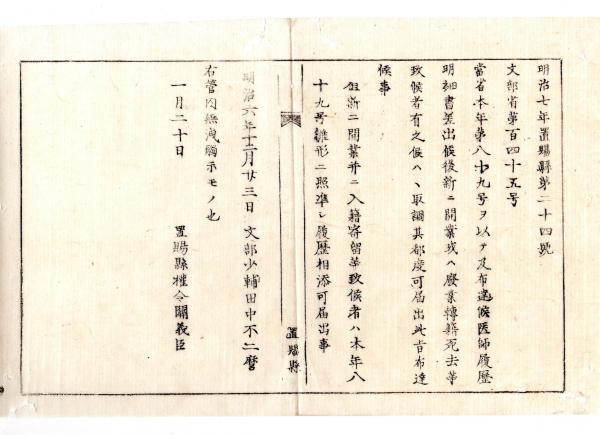 明治七年置賜縣第二十四號
文部省第百四十五号
當省本年第八十九号ヲ以テ及布達候医師履歴
明細書差出候後新ニ開業或ハ廃業轉籍死去等
致候者有之候ハヽ取調其都度可届出此旨布達
候事
但新ニ開業并ニ入籍寄留等致候者ハ本年八
十九号雛形ニ照準シ履歴相添可届出事
置賜縣
明治六年十二月廿三日 文部少輔田中不二麿
右管内無洩觸示モノ也
一月二十日 置賜縣權令關義臣